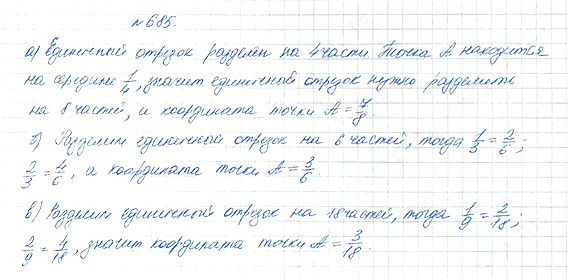 №685.
а) Единичный отрезок разделён на 4 части. Точка A находится
на середине 1/4, значит единичный отрезок нужно разделить
на 8 частей, и координата точки A = 7/8.
б) Разделим единичный отрезок на 6 частей, тогда 1/3 = 2/6;
2/3 = 4/6, а координата точки A = 3/6
в) Разделим единичный отрезок на 18 частей, тогда 1/9 = 2/18;
2/9 = 4/18, значит координата точки A = 3/18.